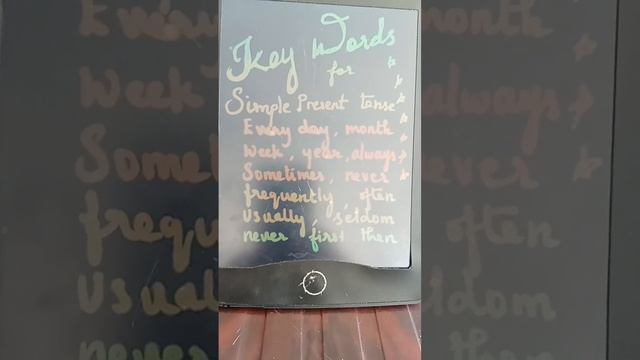 Key Words
for
Simple Present tense
Every day, month
Week, year, always
Sometimes, never
frequently often
Usually, seldom
never first then